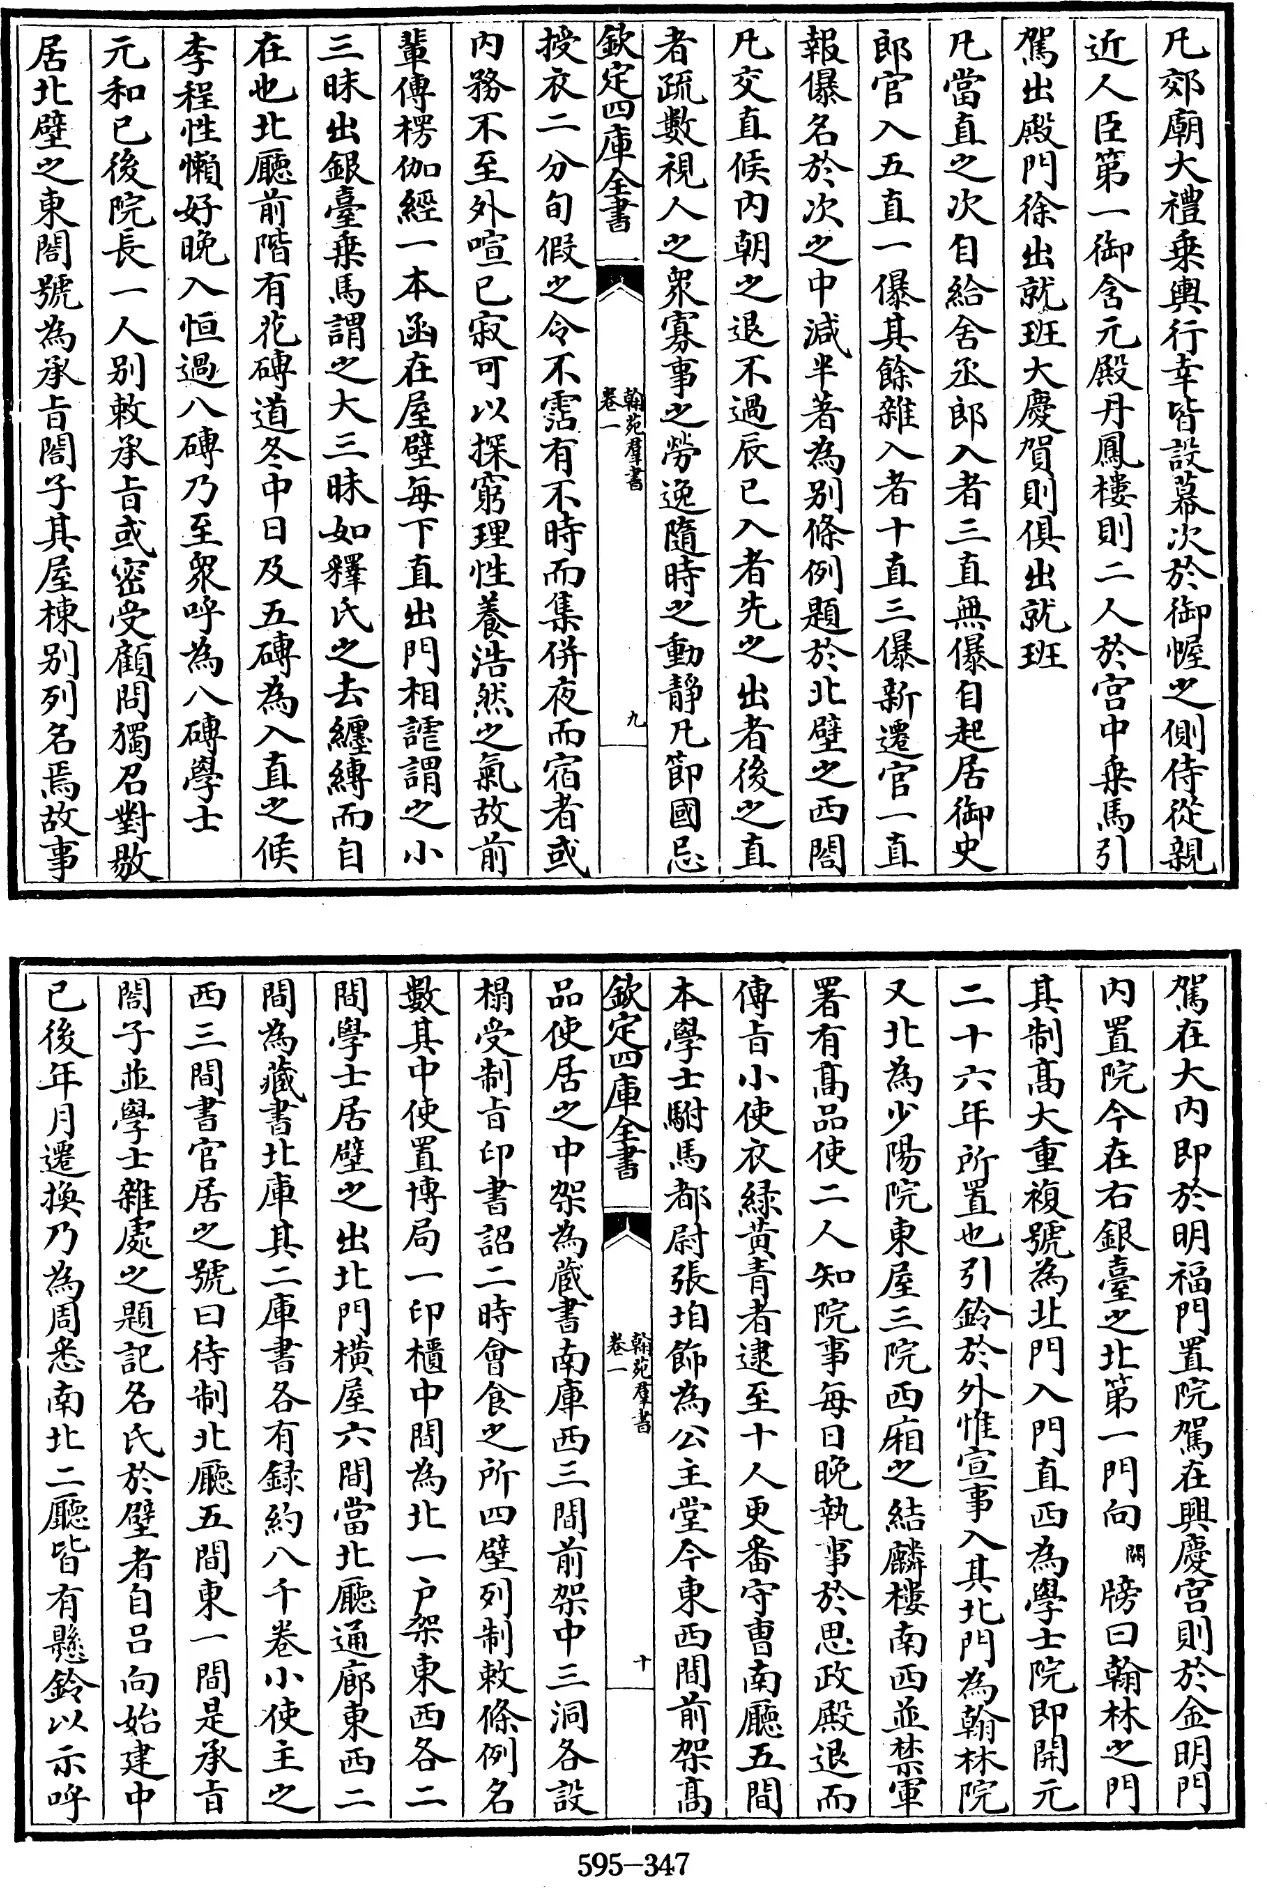 凡郊廟大禮乗輿行幸皆設幕次於御幄之側侍從親
近人臣第一御含元殿丹鳳樓則二人於宫中乗馬引
駕出殿門徐出就班大慶賀則俱出就班
凡當直之次自給舍丞郎入者三直無儤自起居御史
郎官入五直一儤其餘雜入者十直三儤新遷官一直
報儤名於次之中減半著為别條例題於北壁之西閤
凡交直候内朝之退不過辰巳入者先之出者後之直
者疏數視人之衆寡事之勞逸隨時之動靜凡節國忌
欽定四庫全書
翰苑羣書
卷一
九
授衣二分旬假之令不霑有不時而集併夜而宿者或
内務不至外喧已寂可以探窮理性養浩然之氣故前
輩傳楞伽經一本函在屋壁每下直出門相謔謂之小
三昧出銀臺乗馬謂之大三昧如釋氏之去纒縛而自
在也北廳前階有花磚道冬中日及五磚為入直之候
李程性懶好晚入恒過八磚乃至衆呼為八磚學士
元和已後院長一人别敕承旨或密受顧問獨召對敭
居北壁之東閤號為承旨閤子其屋棟别列名焉故事
駕在大内即於明福門置院駕在興慶宫則於金明門
内置院今在右銀臺之北第一門向闕牓曰翰林之門
其制高大重複號為北門入門直西為學士院即開元
二十六年所置也引鈴於外惟宣事入其北門為翰林院
又北為少陽院東屋三院西廂之結麟樓南西並禁軍
署有高品使二人知院事每日晚執事於思政殿退而
傳旨小使衣緑黄青者逮至十人更番守曹南廳五間
本學士駙馬都尉張垍飾為公主堂今東西間前架高
欽定四庫全書
翰苑羣書
卷一
十
品使居之中架為藏書南庫西三間前架中三洞各設
榻受制旨印書詔二時會食之所四壁列制敕條例名
數其中使置博局一印櫃中閤為北一户架東西各二
間學士居壁之出北門横屋六間當北廳通廊東西二
間為藏書北庫其二庫書各有録約八千卷小使主之
西三間書官居之號曰待制北廳五間東一間是承旨
閤子並學士雜處之題記名氏於壁者自吕向始建中
已後年月遷換乃為周悉南北二廳皆有懸鈴以示呼
595-347